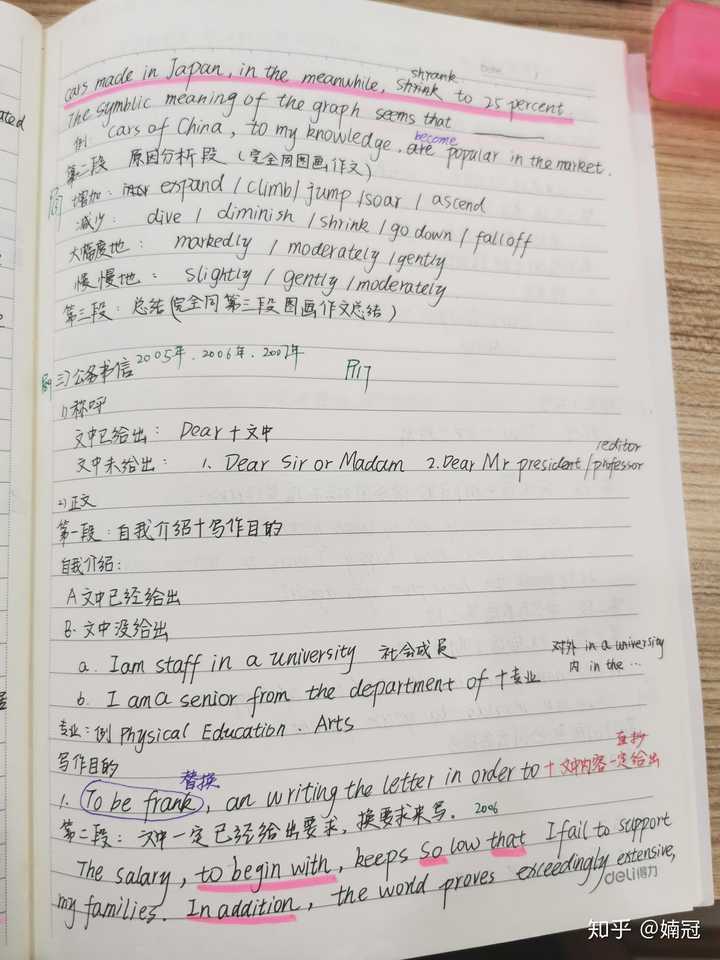 ated
shrank
cars made in Japan, in the meanwhile, shrink to 25 percent.
The symblic meaning of the graph seems that ______
例 cars of China, to my knowledge, are popular in the market.
become
第二段 原因分析段（完全同图画作文）
增加: espand / climb / jump / soar / ascend
减少: dive / diminish / shrink / go down / fall off
大幅度地: markedly / moderately / gently
慢慢地: slightly / gently / moderately
第三段: 总结(完全同第三段图画作文总结)
三)公务书信 2005年、2006年、2007年 P117
1)称呼
文中已给出: Dear + 文中
/editor
文中未给出: 1. Dear Sir or Madam 2. Dear Mr president / professor
2)正文
第一段: 自我介绍+写作目的
自我介绍:
A 文中已经给出
B. 文中没给出
a. I am staff in a university 社会成员 对外 in a university
内 in the ...
b. I am a senior from the department of + 专业
专业: 例 Physical Education . Arts
写作目的 替换 直抄
1. To be frank, an writing the letter in order to + 文中内容一定给出
第二段: 文中一定已经给出要求, 换要求来写. 2006
The salary, to begin with, keeps so low that I fail to support
my families. In addition, the world proves exceedingly extensive,
deli得力
知乎 @婻冠